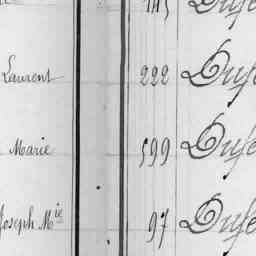 Laurent 222 Dufe
Marie 599 Dufe
Joseph M^ie 97 Dufe